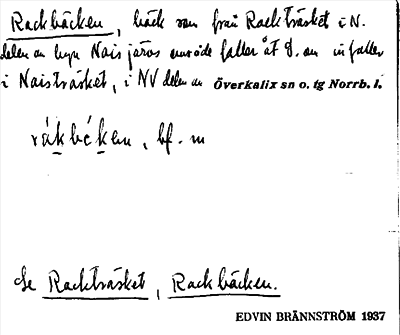 Rackbäcken, bäck som från Rackträsket i N.
delen av byn Naisjärvs område faller åt S. o. infaller
i Naisträsket, i NV delen av Överkalix sn o. tg Norrb. l.
rákbéken, bf. m
Se Rackträsket, Rackbäcken.
EDVIN BRÄNNSTRÖM 1937